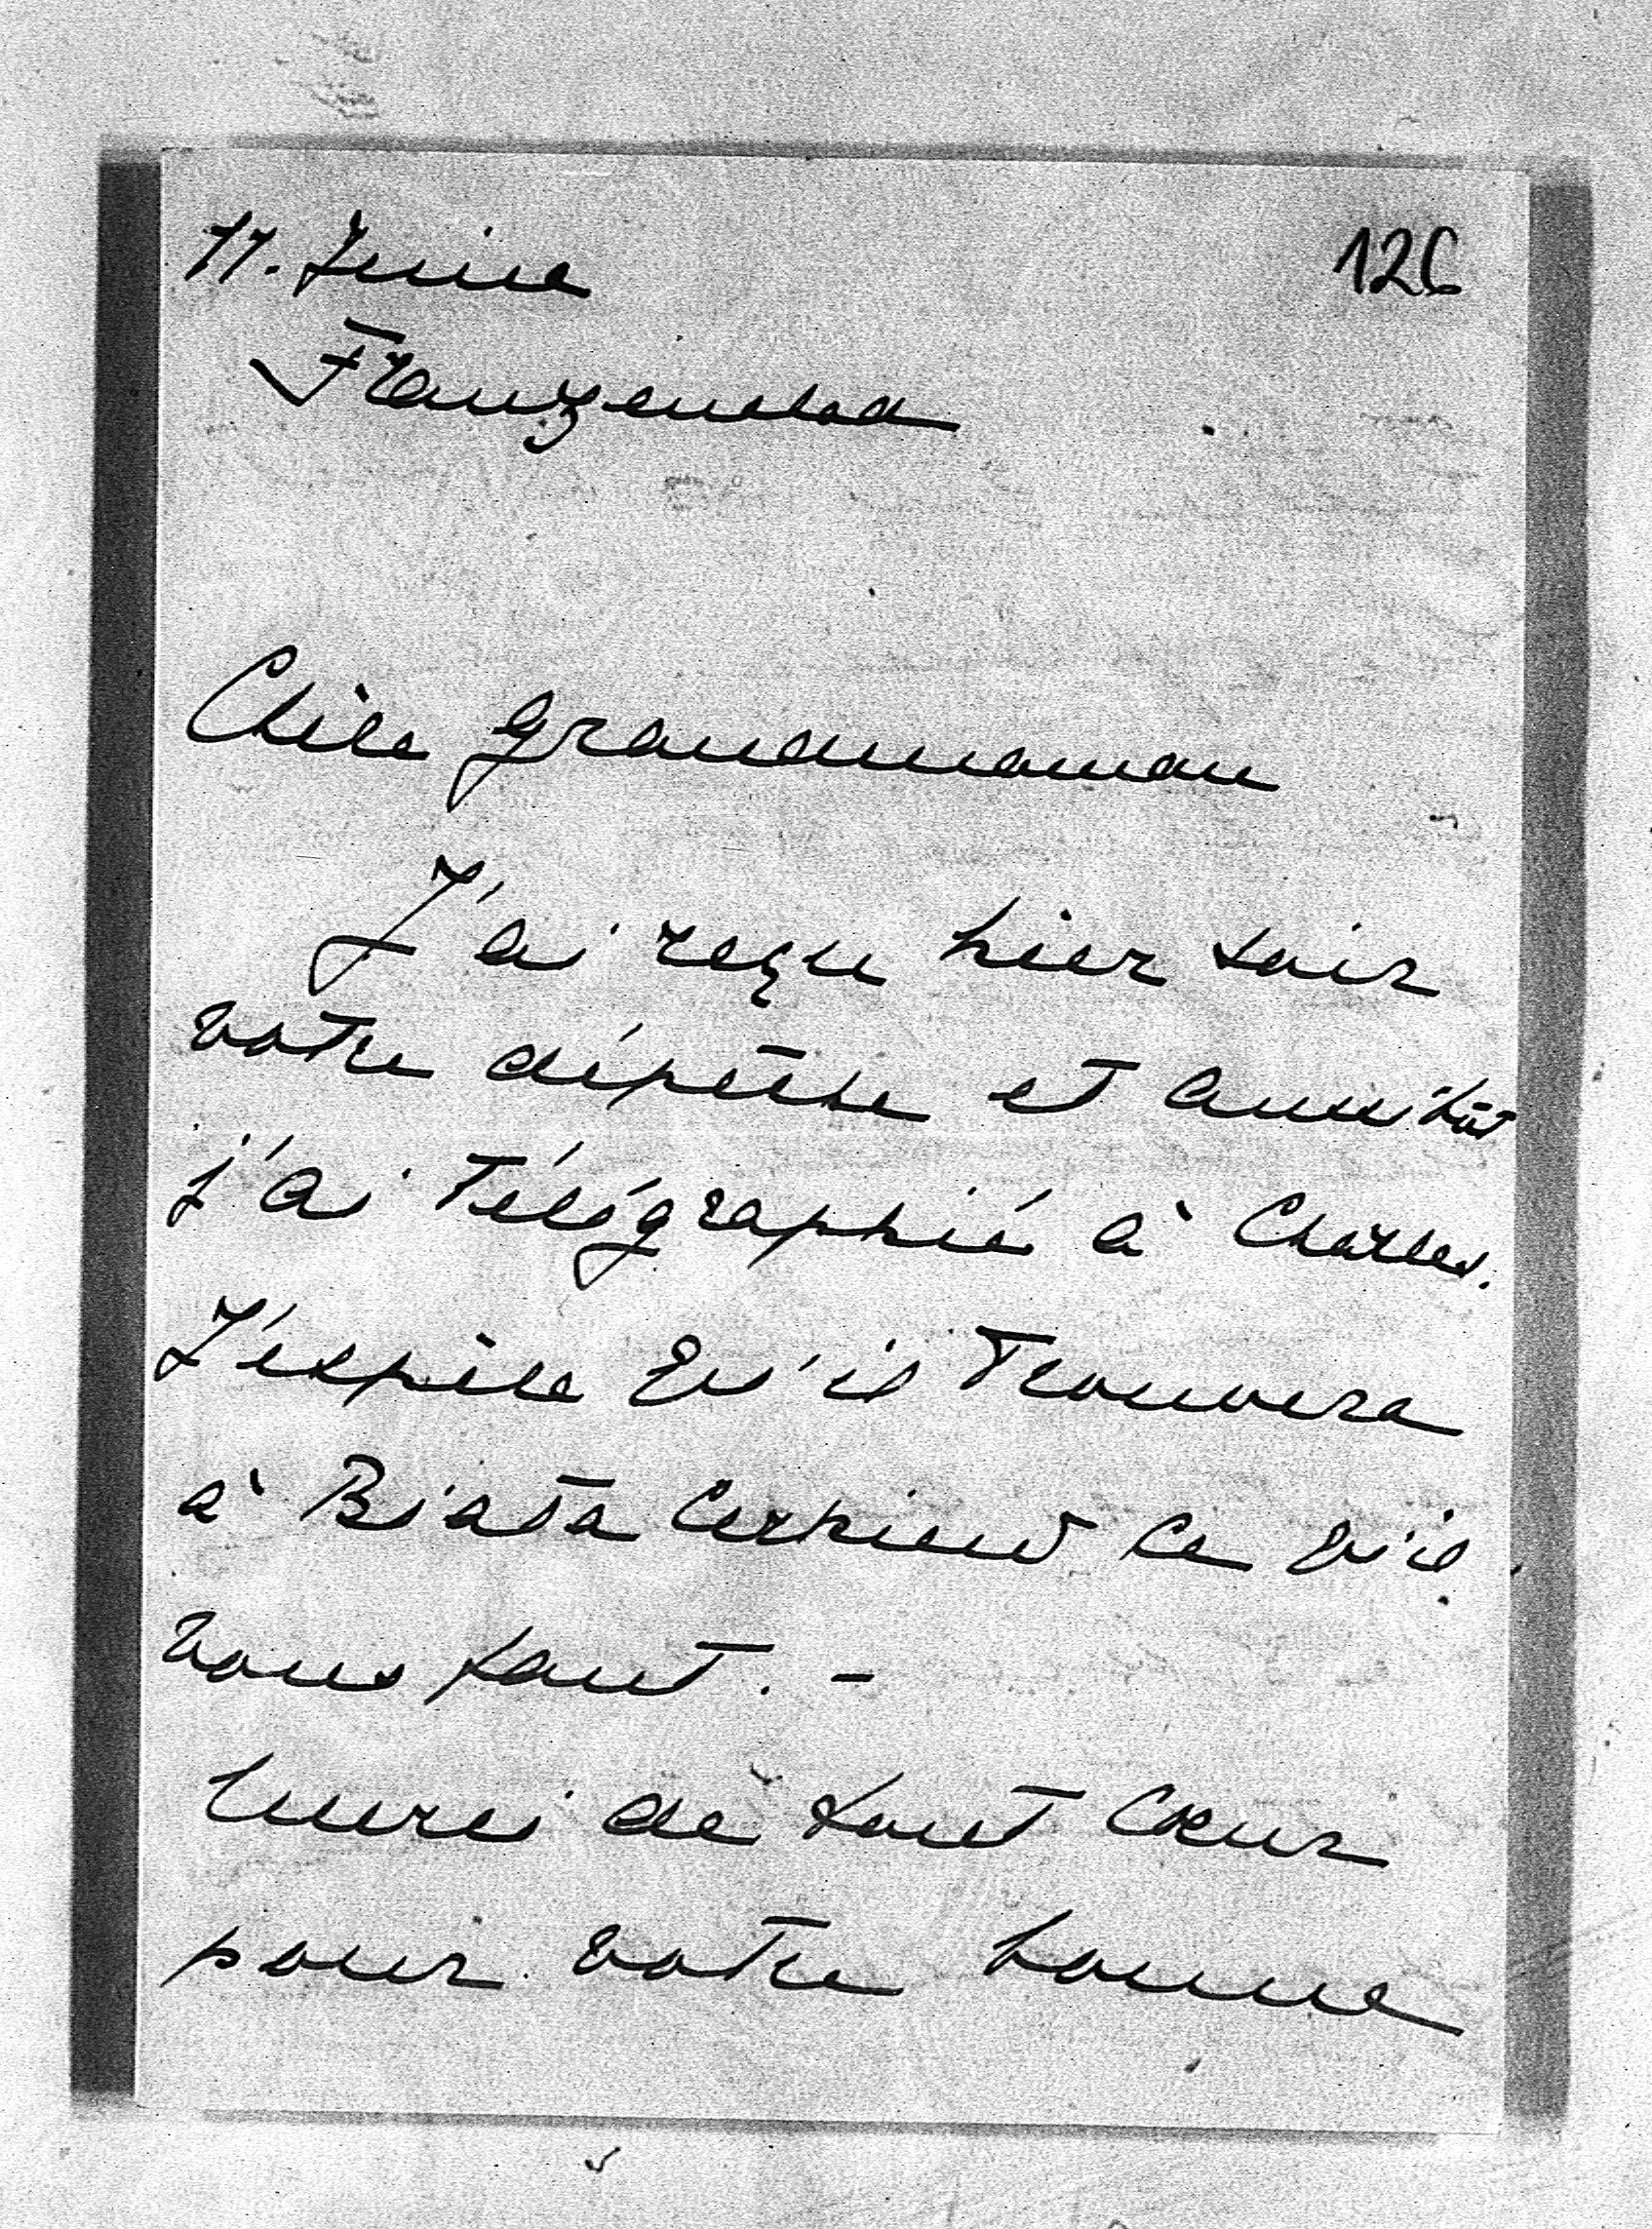 11. Juin 126
Franzensbad
Chère Grandmaman
J'ai reçu hier soir
votre dépêche et aussitôt
j'ai télégraphié à Charles.
J'espère qu'il trouvera
à Biała Cerkiew ce qu'il
vous faut. -
Merci de tout cœur
pour votre bonne